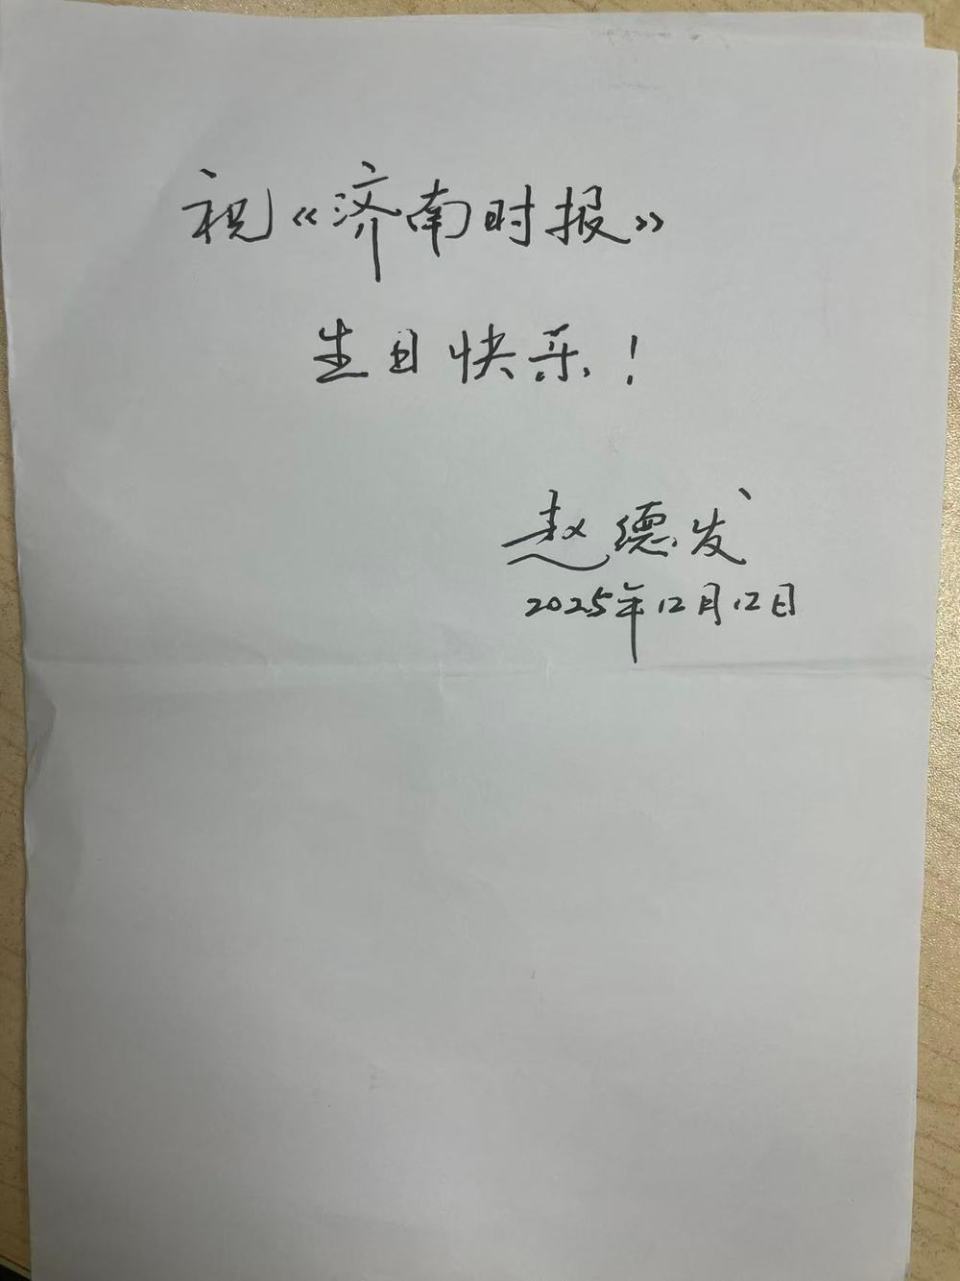 祝《济南时报》
生日快乐！
赵德发
2025年12月12日